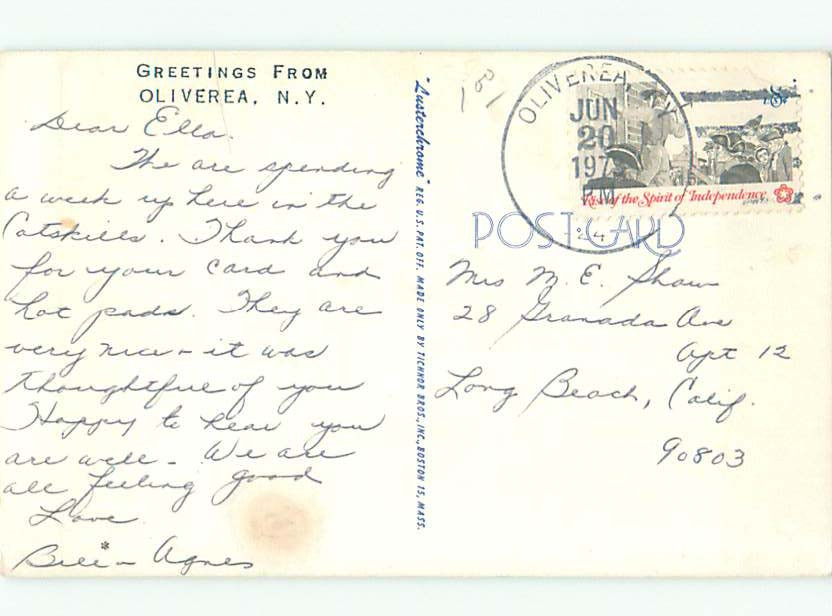 GREETINGS FROM
OLIVEREA, N.Y.
Dear Ella.
The are spending
a week up here in the
Catskills. Thank you
for your card and
hot pads. They are
very nice - it was
thoughtful of you
Happy to hear you
are well - We are
all feeling good
Love
Bill - Agnes
"Lusterchrome" REG. U.S. PAT. OFF. MADE ONLY BY TICHNOR BROS., INC., BOSTON 15, MASS.
OLIVEREA, NY
JUN
20
197
PM
8¢
Rise of the Spirit of Independence
POST CARD
Mrs M. E. Shaw
28 Granada Ave
Apt 12
Long Beach, Calif.
90803